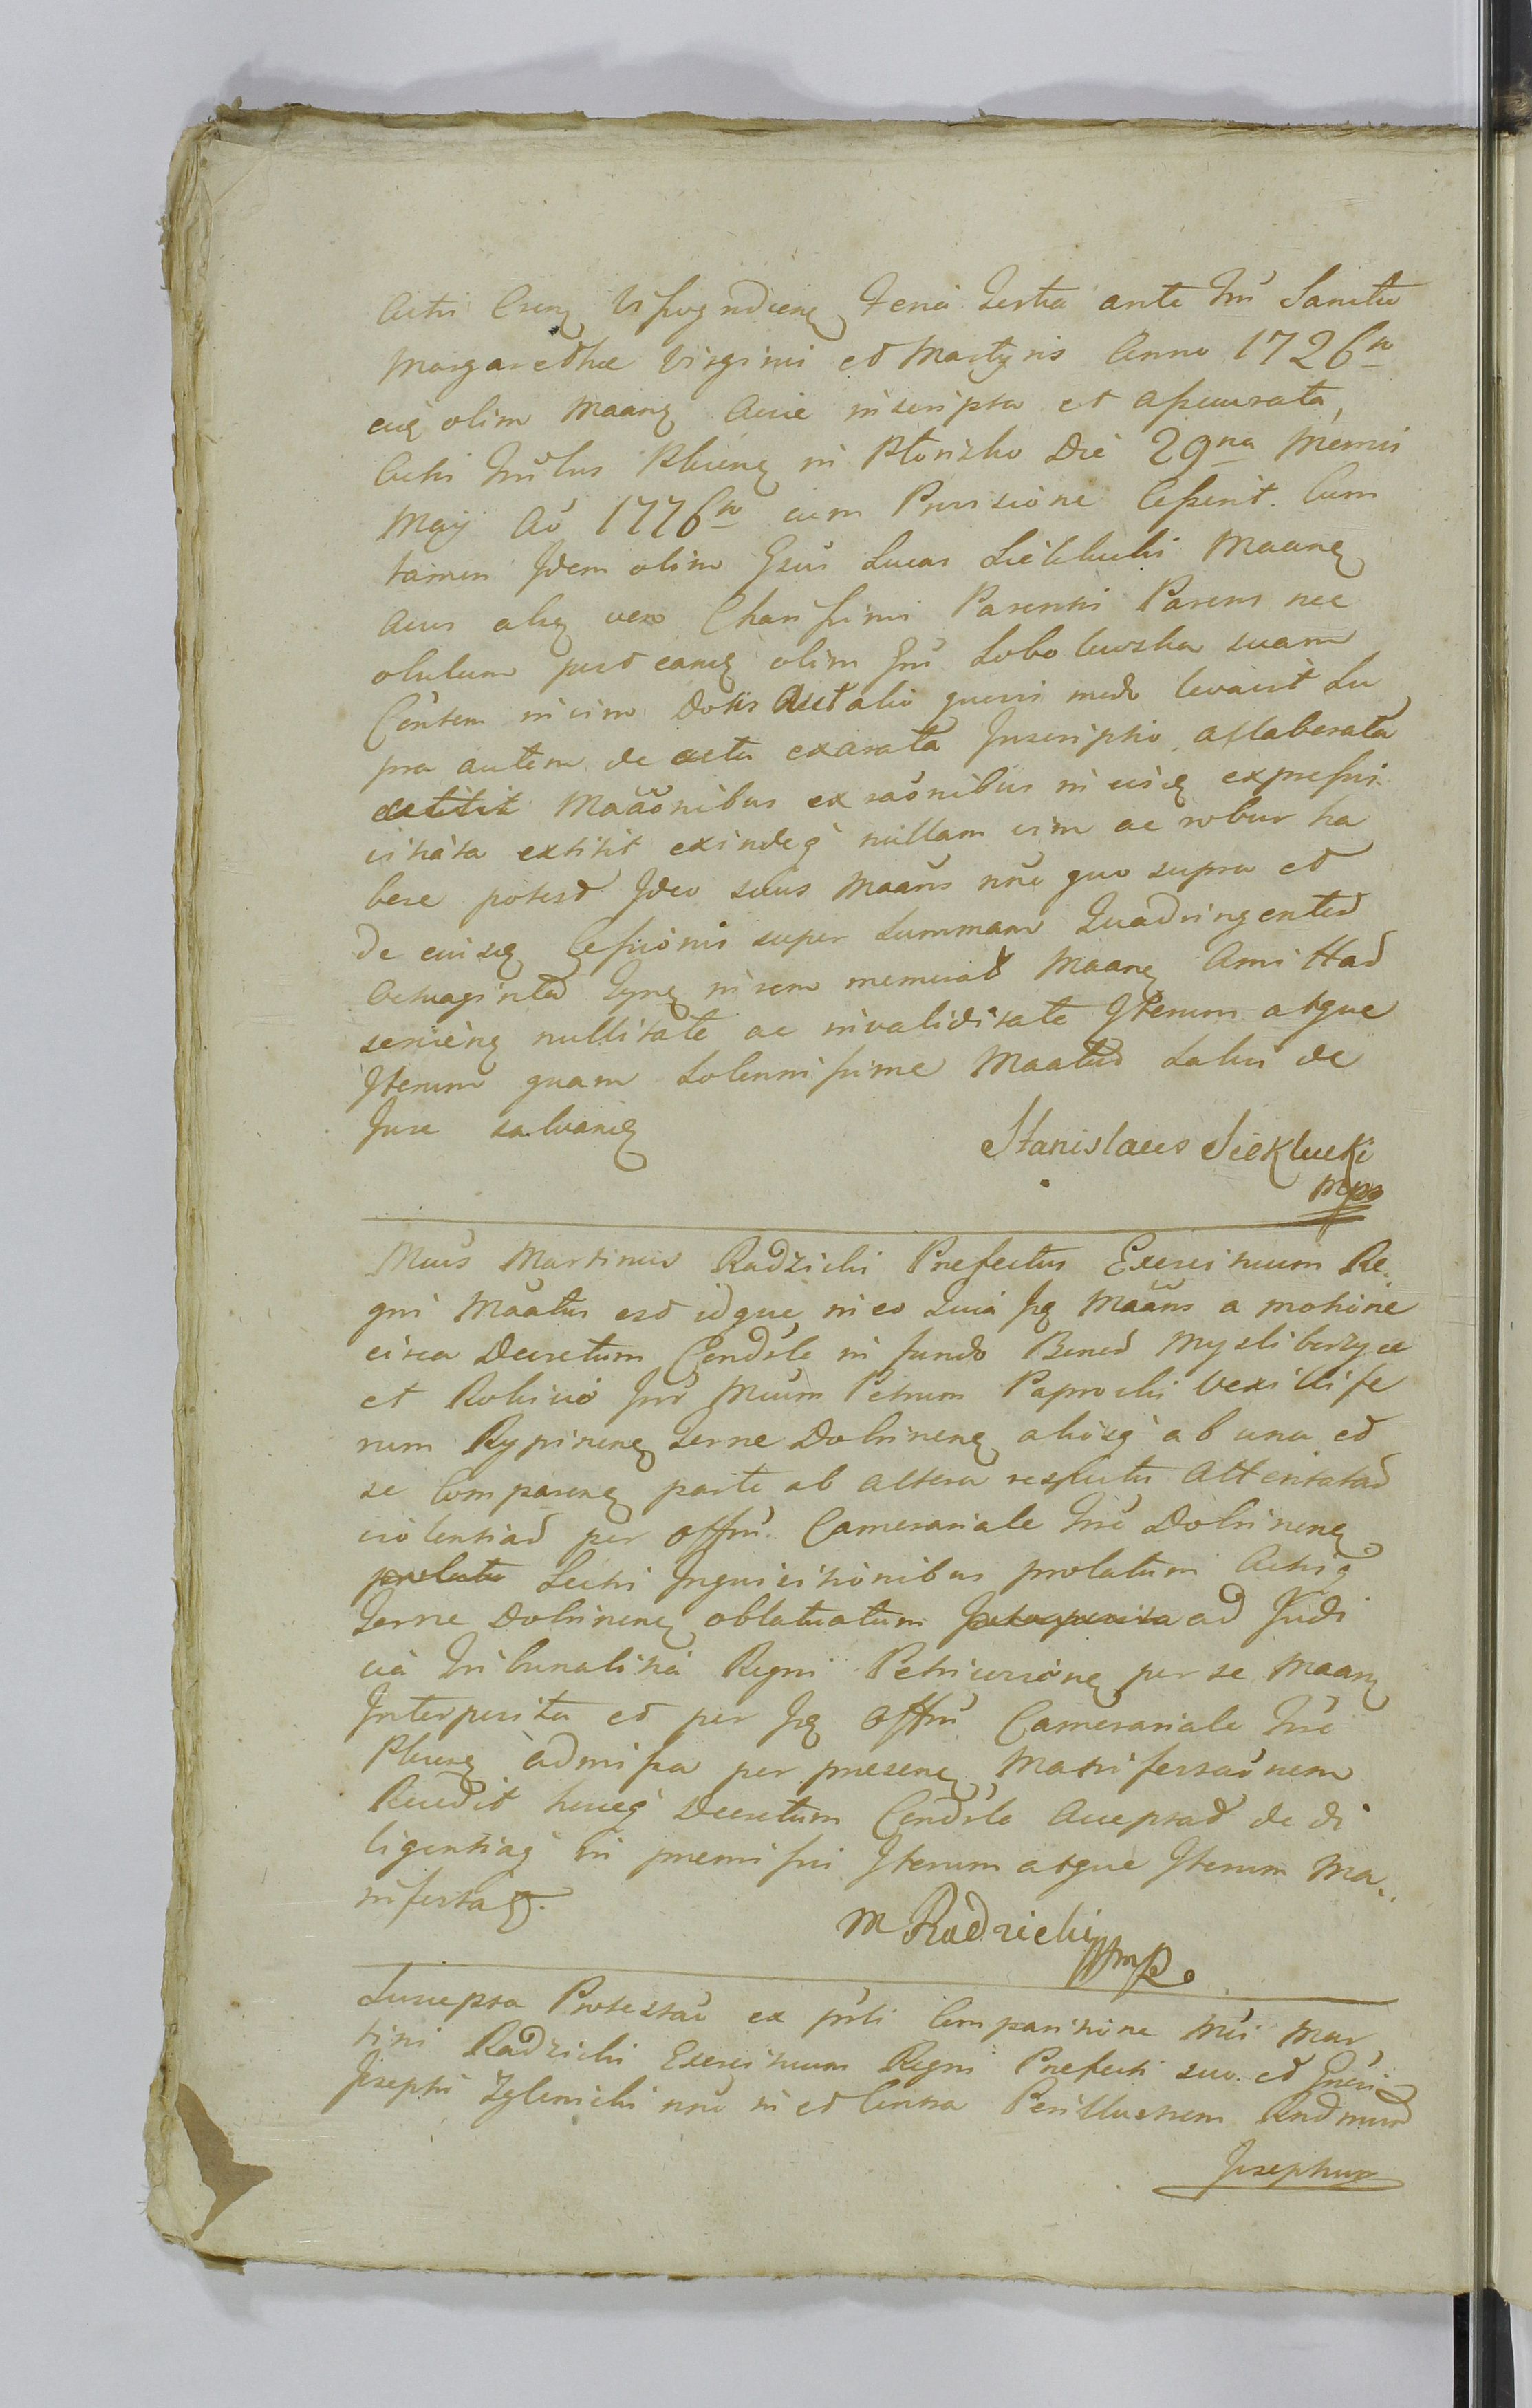 Actis Crens Vissogrodiens Feria Tertia ante Fm̃ Sanctæ
Margarethæ Virginis et Martyris Anno 1726to
eiq olim Maanq Aviæ inscripta et assecurata,
Actis Plocens in Płonsko Die 29na Mensis
Maÿ Aõ 1776to cum Provisione Cesserit. Cum
tamen Idem olim Gsus Lucas Sieklucki Maanq
Avus alsq vero Charissimi Parentis Parens nec
obulum post eamq olim Gm̃ Sobolewska suam
Consem in vim Dotis aut alio quovis modo levavit Su
pra autem de actu exarata Inscriptio, aflaborata
Maãonibus ex raõnibus in eisq expressis
vitiata extitit exindeq nullam vim ac robur ha
bere potest Ideo suus Maãns nõe quo supra et
de eiusq Cessionis super Summam Quadringentas
Octuaginta in rem memorat Maanq Amittad
serviens nullitate ac invaliditate Iterum atque
Iterum quam Solennissime Maatus Salvis de
Jure salvandis
Stanislaus Sieklucki
mpo
Mcus Martinus Radzicki Præfectus Exercituum Re
gni Maãtus est idque in eo Quia Iq Maãns a motione
circa Decretum Condsle in fundo Bonor Mysliborzyce
et Rokicie Int Mcum Petrum Paprocki Vexillife
rum Rypinens Terræ Dobrinens aliosq ab una et
se Comparens parte ab altera respectu Attentatar
violentiar per Offm̃ Camerariale Træ Dobrinens
prolatu Secti Inquisitionibus prolatum Actisq
Terræ Dobrinens oblatuatum ad Judi
cia Tribunalitia Regni Petricovienq per se Maanq
Interposita et per Iq Offm̃ Camerariale Træ
Plocens admissa per præsens Manifestaõnem
Recedit huncq Decretum Condsle Acceptat de di
ligentiaq in præmissis Iterum atque Iterum Ma
nifestatq.
M Radzicki mpo
Suscepta Protestaõ ex prsti Comparitione Mci Mar
tini Radzicki Exercituum Regni Præfecti suo et Gnsi
Josephi Zglenicki nõe in et Contra Perillustrem Rndmum
Josephum